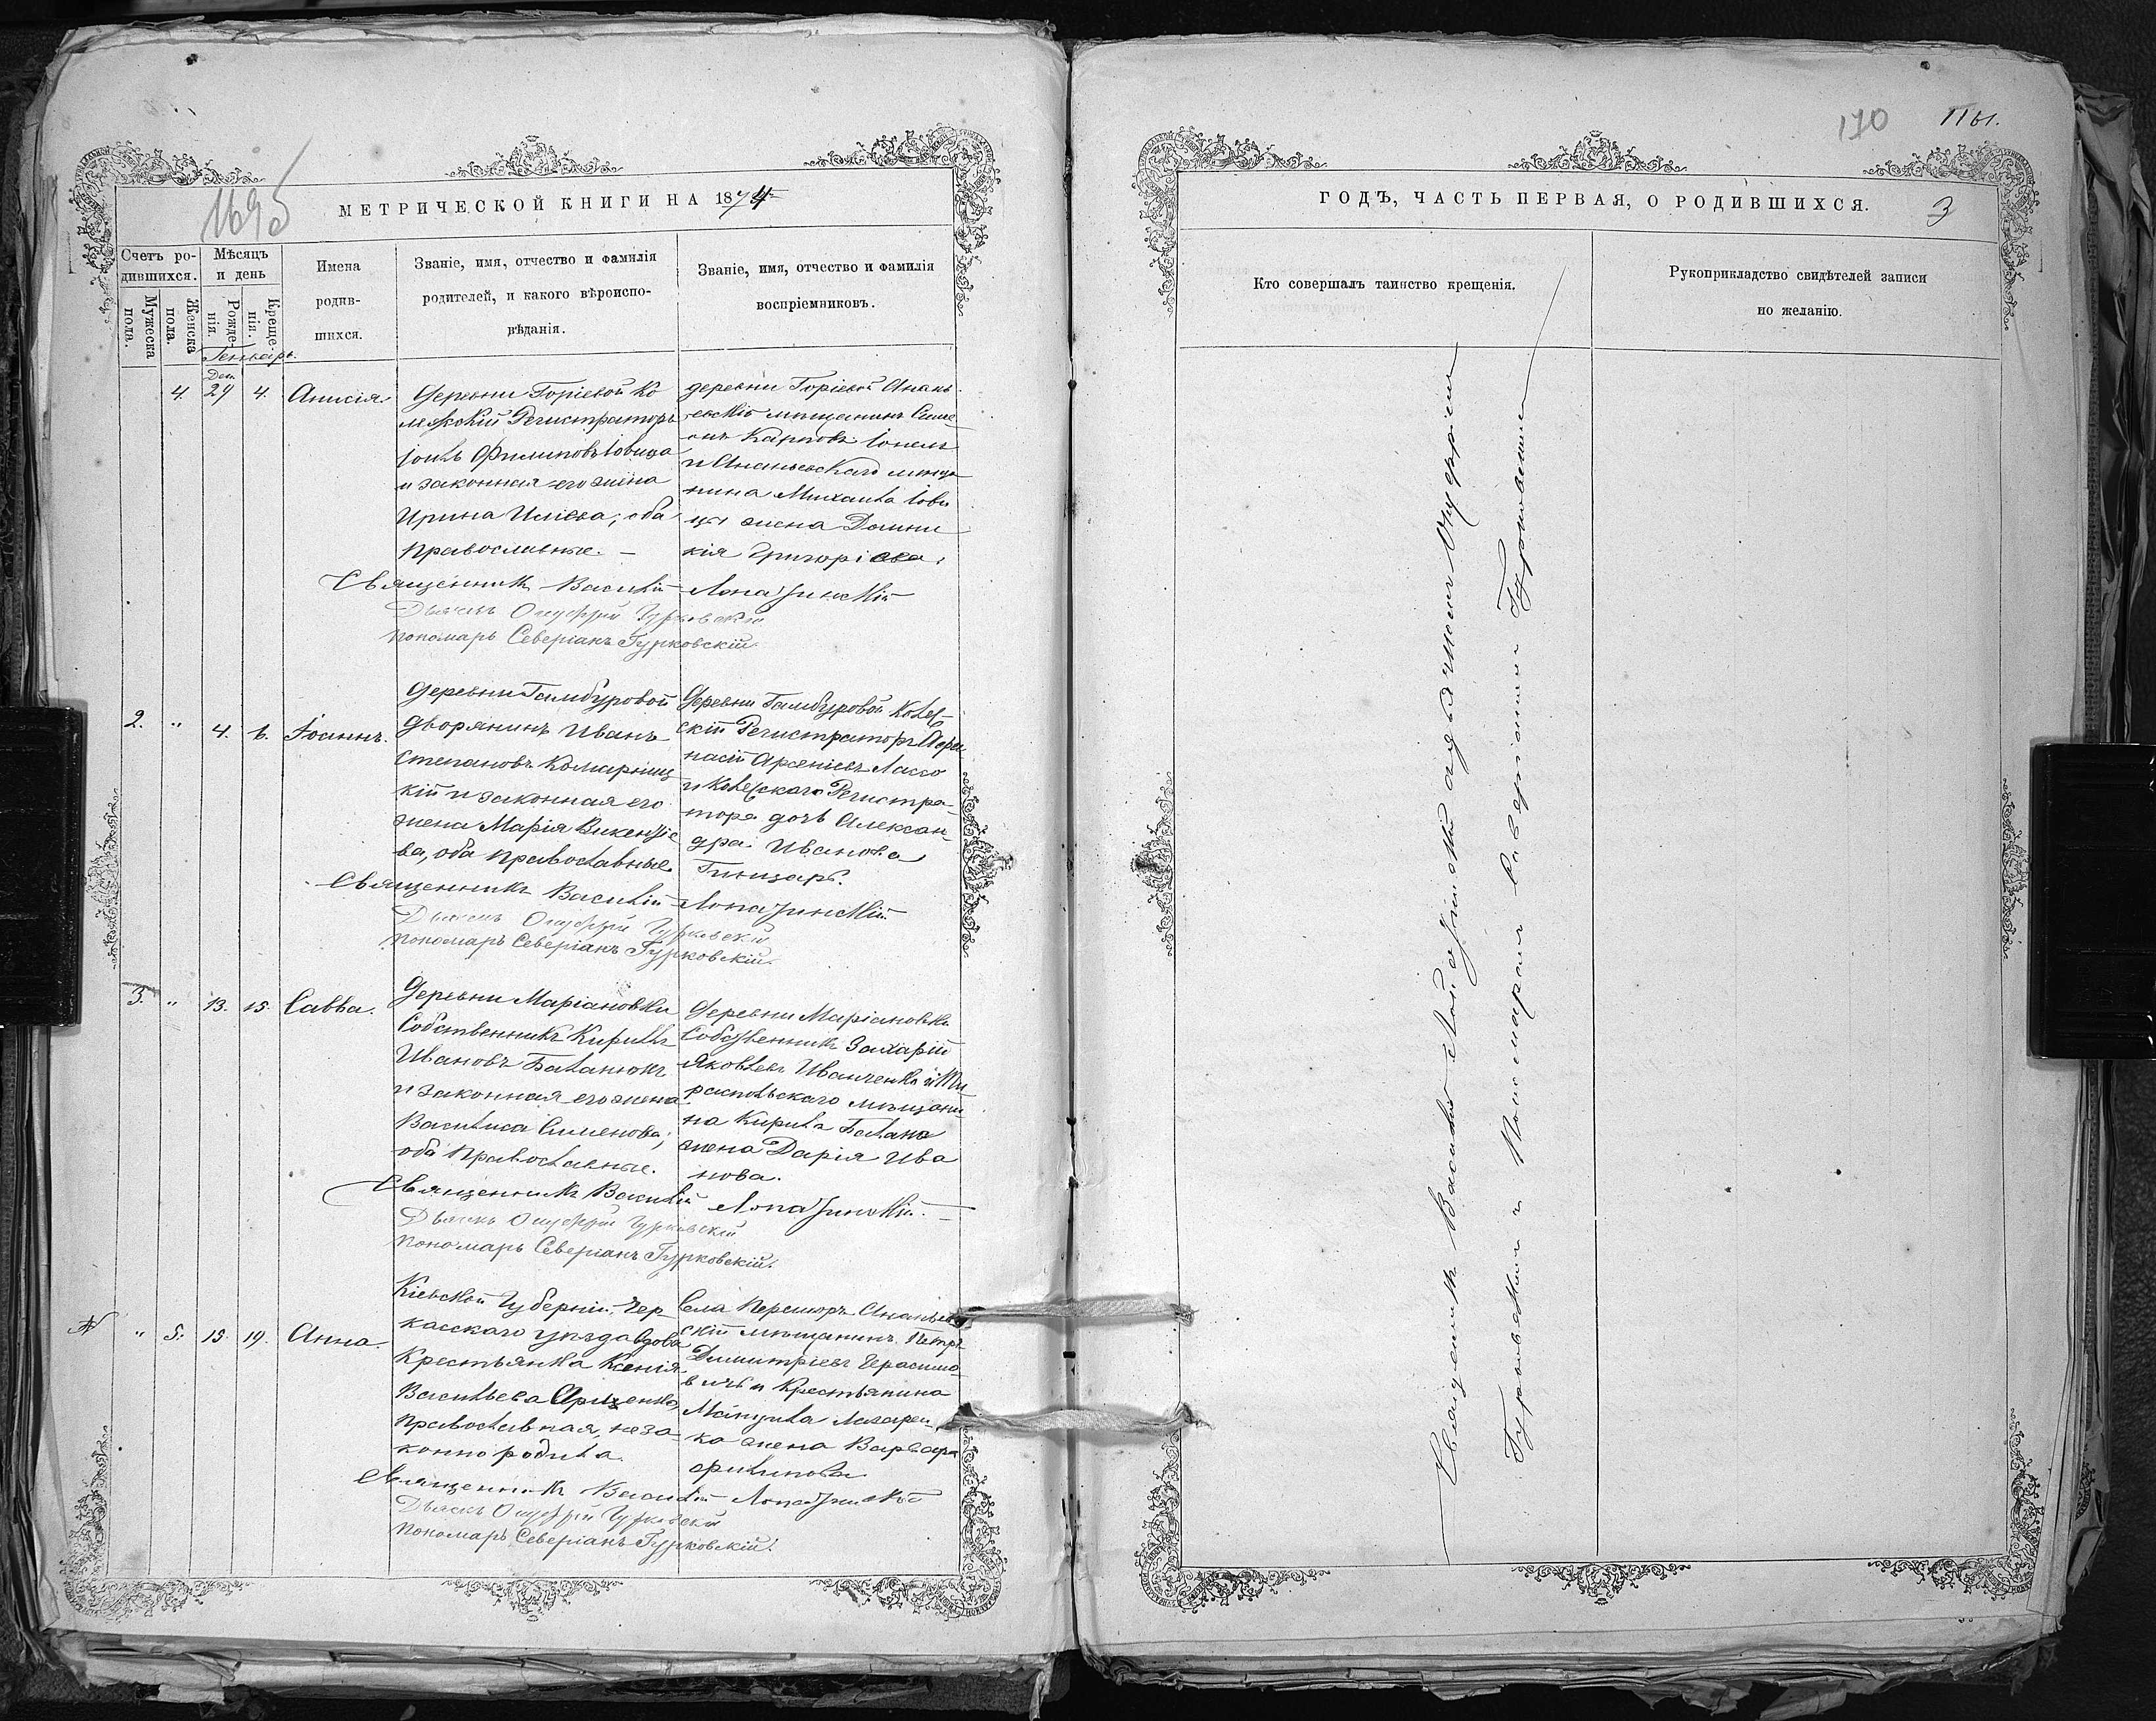 169б
МЕТРИЧЕСКОЙ КНИГИ НА 1874
Счетъ ро-
дившихся.
Мужеска
пола.
Женска
пола.
Мѣсяцъ
и день
Рожде-
нія.
Креще-
нія.
Имена
родив-
шихся.
Званіе, имя, отчество и фамилія
родителей, и какого вѣроиспо-
вѣданія.
Званіе, имя, отчество и фамилія
воспріемниковъ.
Генварь.
4. Дек. 29 4. Анисія.
Деревни Горіевой Ко
лежскій Регистраторъ
Іоиль Филиповъ Іовица
и законная его жена
Ирина Иліева; оба
православные. —
деревни Горіевой Анань
евскій мѣщанинъ Симе
онъ Карповъ
и Ананьевскаго мѣща
нина Михаила Іови
цы жена Домни
кія Григоріева.
Священникъ Василій Лопатинскій
Дьячекъ Онуфрій Гурковскій
пономарь Северіанъ Гурковскій.
2. " 4. 6. Іоаннъ.
Деревни Гамбуровой
дворянинъ Иванъ
Степановъ Комарниц
кій и законная его
жена Марія Викентіе
ва, оба православные
Деревни Гамбуровой Коллеж
скій Регистраторъ Афа
насій Арсеніевъ Лассо
и Коллежскаго Регистра-
тора дочь Алексан-
дра Иванова
Гинцаръ.
Священникъ Василій Лопатинскій
Дьячекъ Онуфрій Гурковскій
пономарь Северіанъ Гурковскій.
3. " 13. 15. Савва.
Деревни Маріановки
Собственникъ Кирилъ
Ивановъ Баланюкъ
и законная его жена
Василиса Сименова;
оба православные.
Деревни Маріановки
Собственникъ Захарій
Яковлевъ Иванченко и Ти
распольскаго мѣщани
на Кирила Балана
жена Дарія Ива
нова.
Священникъ Василій Лопатинскій.
Дьячекъ Онуфрій Гурковскій
пономарь Северіанъ Гурковскій.
" 5. 15. 19. Анна.
Кіевской Губерніи, Чер
касскаго уѣзда вдова
Крестьянка Ксенія
Васильева
православная, неза-
конно родила.
Села Перешоръ Ананьев
скій мѣщанинъ Петръ
Димитріевъ Герасимо
вичъ и Крестьянина
Лазарен
ко жена Варвара
Филипова
Священникъ Василій Лопатинскій
Дьячекъ Онуфрій Гурковскій
пономарь Северіанъ Гурковскій.
170
ГОДЪ, ЧАСТЬ ПЕРВАЯ, О РОДИВШИХСЯ.
3
Кто совершалъ таинство крещенія.
Рукоприкладство свидѣтелей записи
по желанію.
Священникъ Василій Лопатинскій съ дьячкомъ Онуфріемъ
Гурковскимъ и Пономаремъ Северіаномъ Гурковскимъ